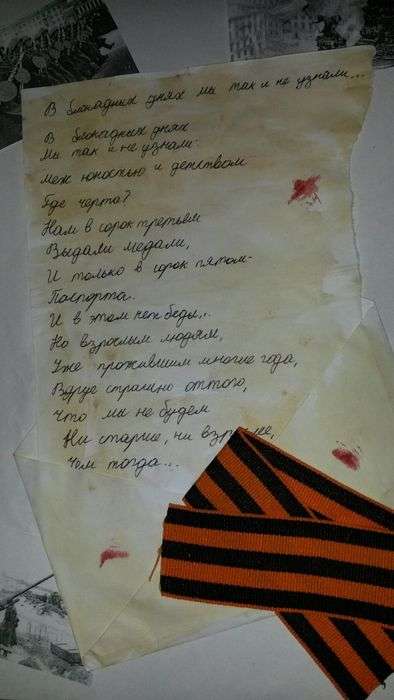 В блокадных днях мы так и не узнали...
В блокадных днях
Мы так и не узнали-
Меж юностью и детством
Где черта?
Нам в сорок третьем
Выдали медали,
И только в сорок пятом-
Паспорта..
И в этом нет беды...
Но взрослым людям,
Уже прожившим многие года,
Вдруг страшно оттого,
Что мы не будем
Ни старше, ни взрослее,
Чем тогда...